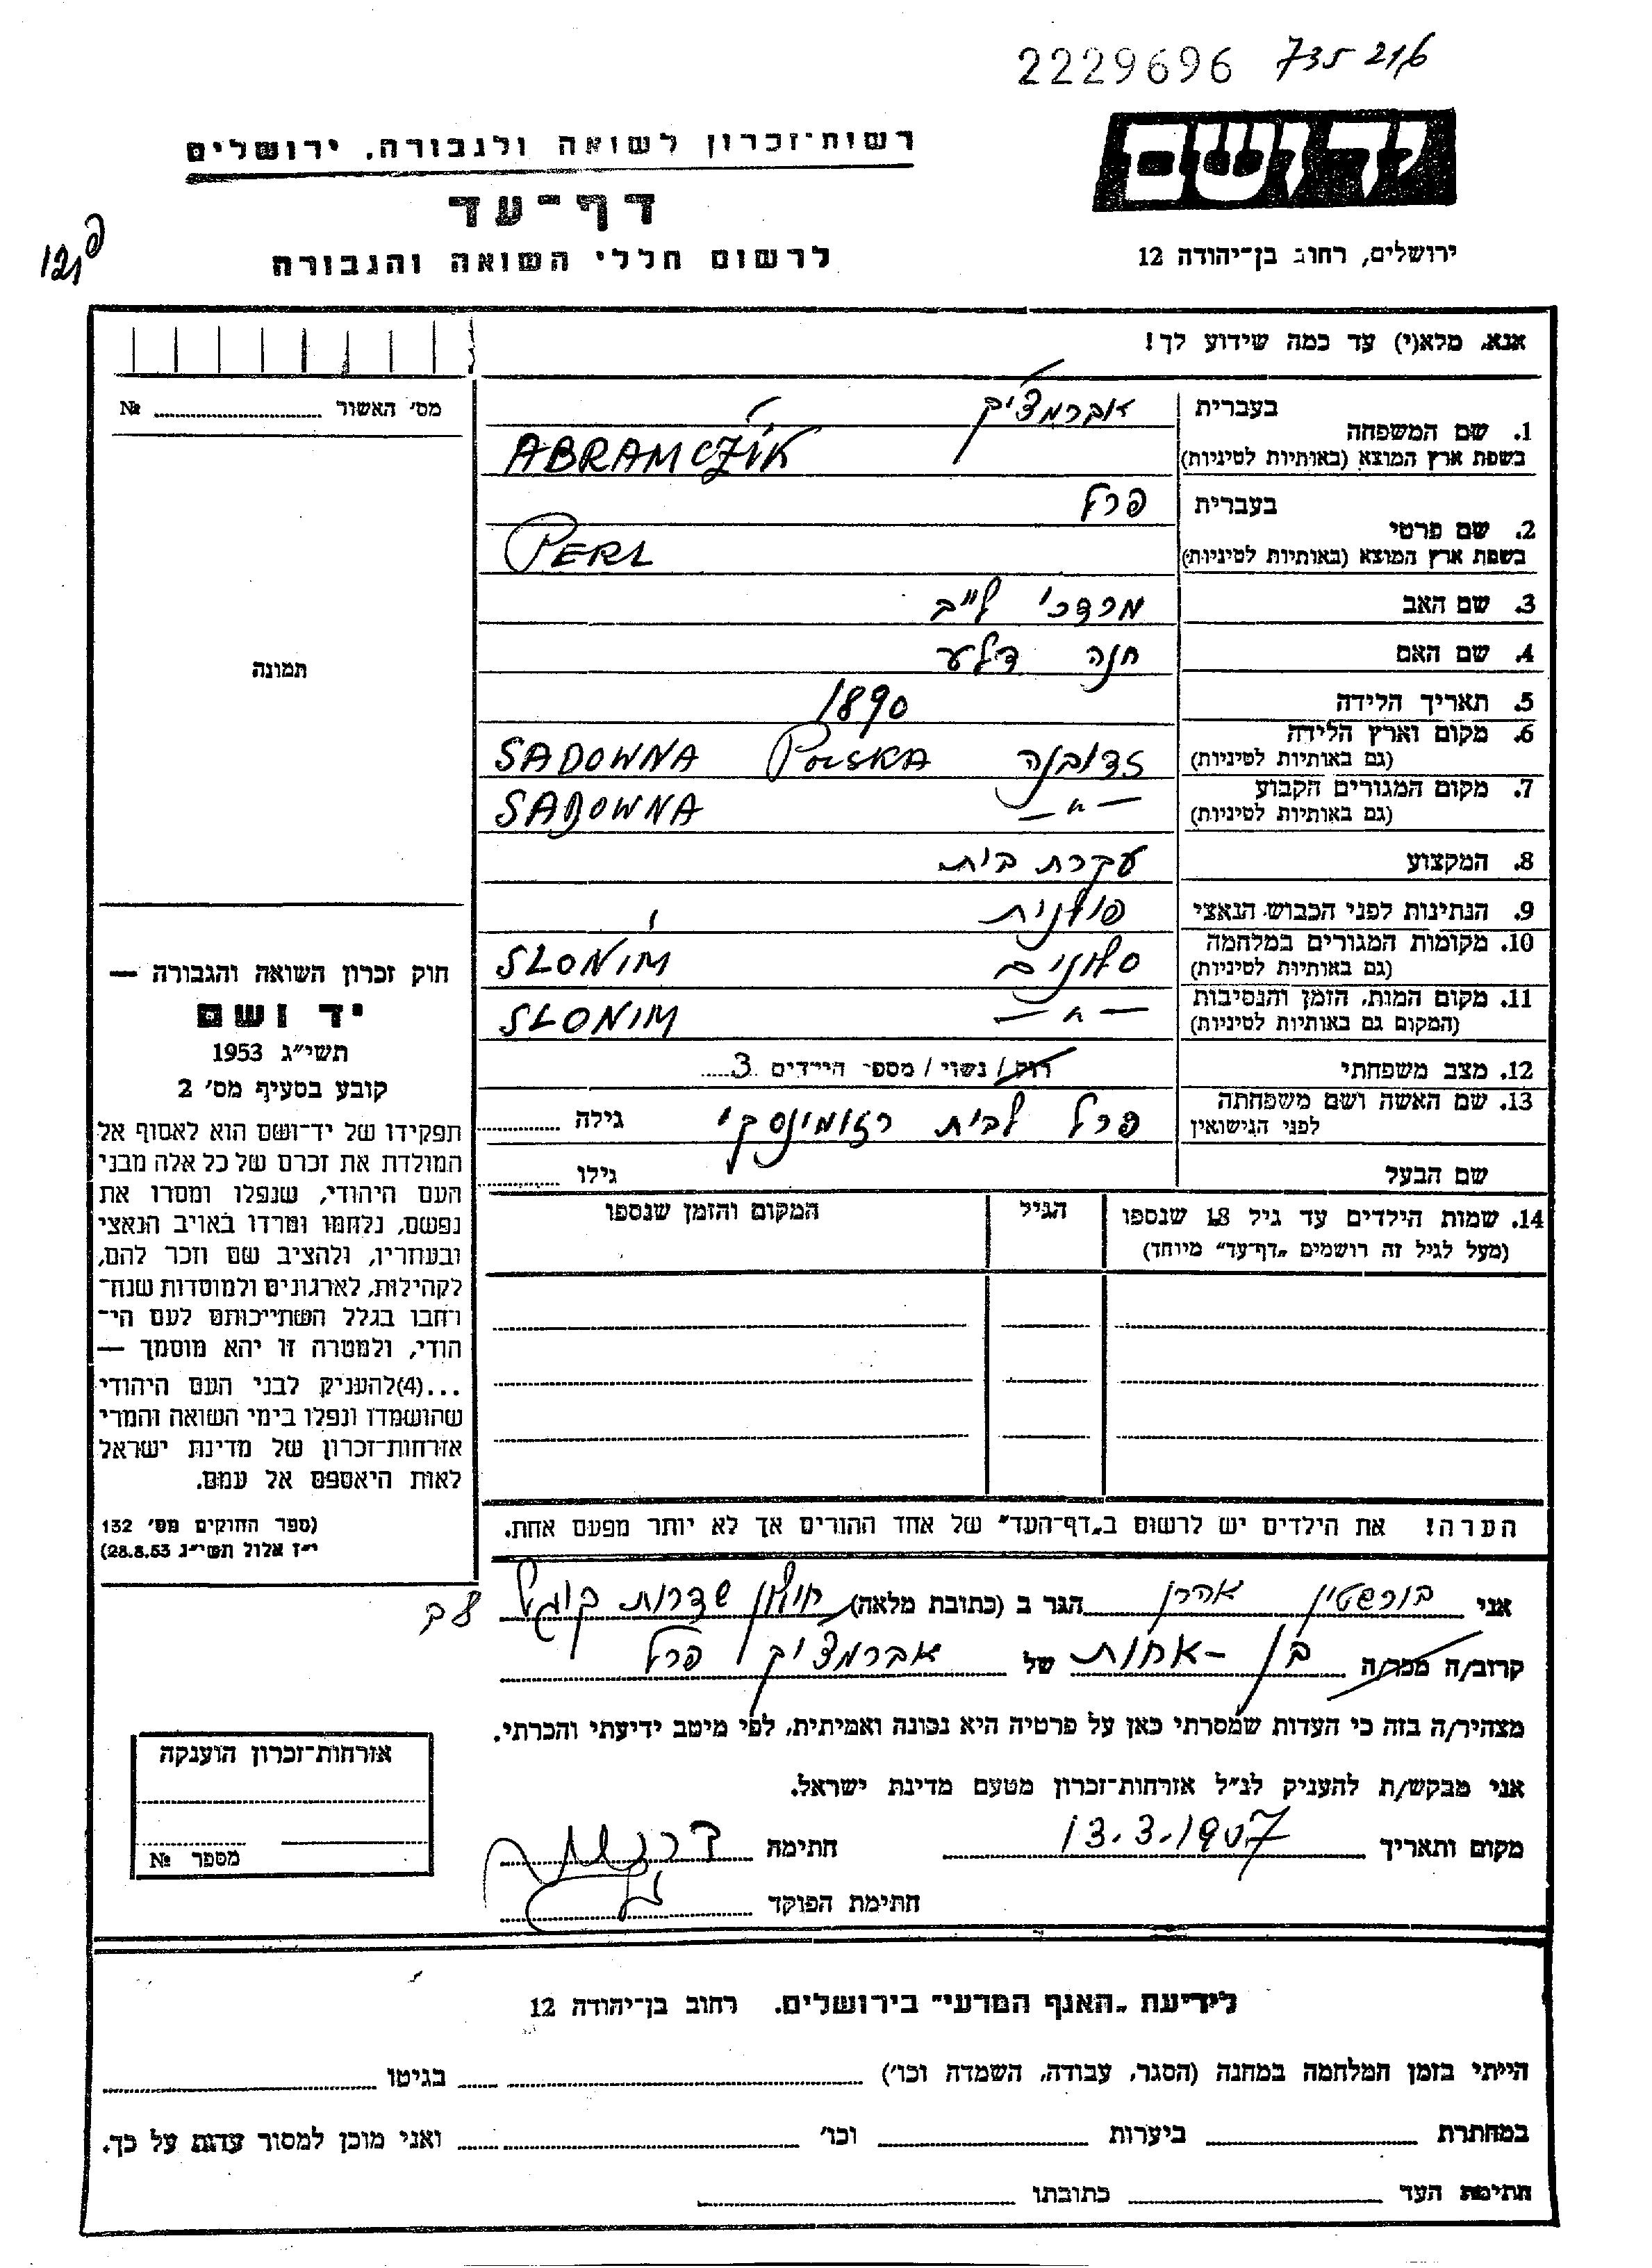 2229696 735 216
רשות־זכרון לשואה ולגבורה, ירושלים
יד ושם
דף־עד
לרשום חללי השואה והגבורה
ירושלים, רחוב בן־יהודה 12
אנא, מלא(י) עד כמה שידוע לך!
מס׳ האשור № 
1. שם המשפחה
בעברית אברמצ׳יק
בשפת ארץ המוצא (באותיות לטיניות) ABRAMCZIK
2. שם פרטי
בעברית פרל
בשפת ארץ המוצא (באותיות לטיניות) PERL
3. שם האב מרדכי לייב
4. שם האם חנה
תמונה
5. תאריך הלידה 1890
6. מקום וארץ הלידה סדובנה POLSKA SADOWNA
(גם באותיות לטיניות)
7. מקום המגורים הקבוע —״— SADOWNA
(גם באותיות לטיניות)
8. המקצוע עקרת בית
9. הנתינות לפני הכבוש הנאצי פולנית
10. מקומות המגורים במלחמה סלונים SLONIM
(גם באותיות לטיניות)
11. מקום המות, הזמן והנסיבות —״— SLONIM
(המקום גם באותיות לטיניות)
12. מצב משפחתי רווק / נשוי / מספר הילדים 3
13. שם האשה ושם משפחתה פרל לבית גילה
לפני הנישואין
שם הבעל גילו
14. שמות הילדים עד גיל 18 שנספו הגיל המקום והזמן שנספו
(מעל לגיל זה רושמים „דף־עד״ מיוחד)
חוק זכרון השואה והגבורה —
יד ושם
תשי״ג 1953
קובע בסעיף מס׳ 2
תפקידו של יד־ושם הוא לאסוף אל
המולדת את זכרם של כל אלה מבני
העם היהודי, שנפלו ומסרו את
נפשם, נלחמו ומרדו באויב הנאצי
ובעוזריו, ולהציב שם וזכר להם,
לקהילות, לארגונים ולמוסדות שנח־
רחבו בגלל השתייכותם לעם הי־
הודי, ולמטרה זו יהא מוסמך —
...(4)להעניק לבני העם היהודי
שהושמדו ונפלו בימי השואה והמרי
אזרחות־זכרון של מדינת ישראל
לאות היאספם אל עמם.
(ספר החוקים מס׳ 132
י״ז אלול תשי״ג 28.8.53)
הערה! את הילדים יש לרשום ב„דף־העד״ של אחד ההורים אך לא יותר מפעם אחת.
אני בורשטין אהרן הגר ב (כתובת מלאה) חולון שדרות קוגל
קרוב/ה מכר/ה בן - אחות של אברמצ׳יק פרל
מצהיר/ה בזה כי העדות שמסרתי כאן על פרטיה היא נכונה ואמיתית, לפי מיטב ידיעתי והכרתי.
אני מבקש/ת להעניק לנ״ל אזרחות־זכרון מטעם מדינת ישראל.
מקום ותאריך 13.3.1957 חתימה
חתימת הפוקד
אזרחות־זכרון הוענקה
מספר №
לידיעת „האגף המדעי״ בירושלים. רחוב בן־יהודה 12
הייתי בזמן המלחמה במחנה (הסגר, עבודה, השמדה וכו׳) בגיטו
במחתרת ביערות וכו׳ ואני מוכן למסור עדות על כך.
חתימת העד כתובתו